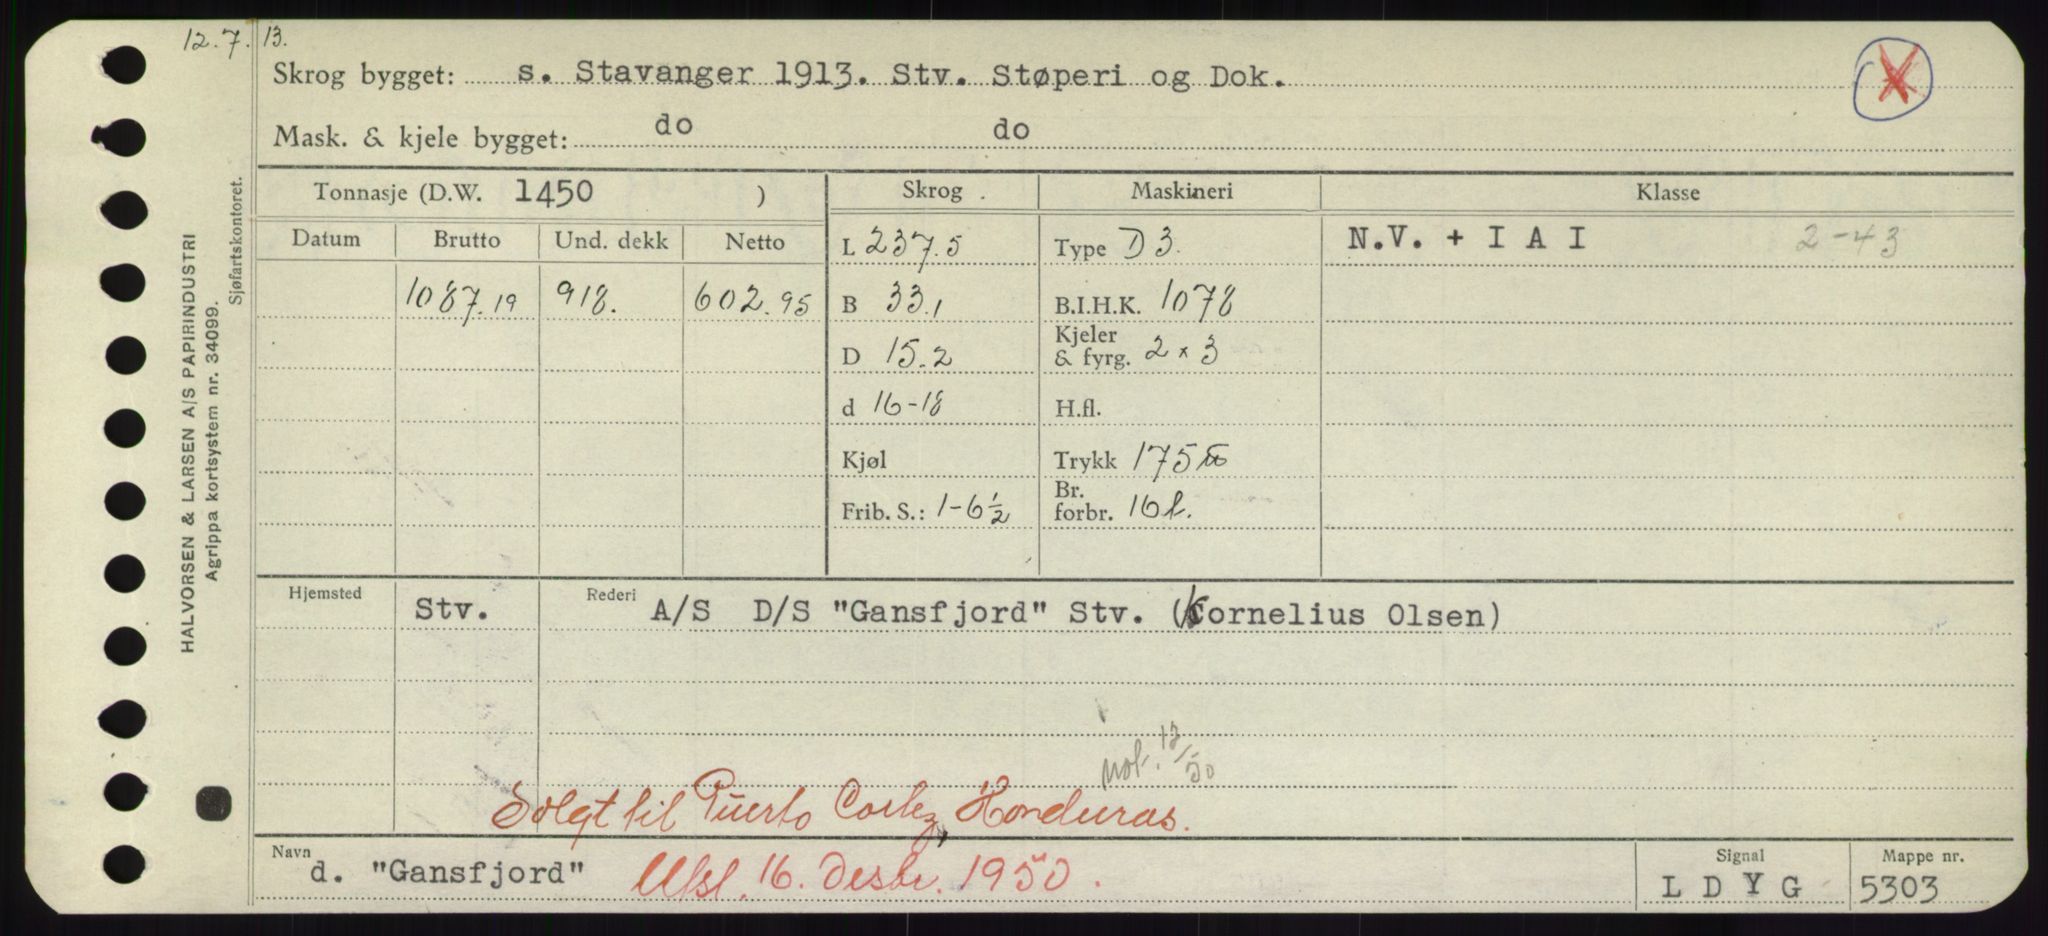 12.7.13.
Skrog bygget: s. Stavanger 1913. Stv. Støperi og Dok.
Mask. & kjele bygget: do do
HALVORSEN & LARSEN A/S PAPIRINDUSTRI
Agrippa kortsystem nr. 34099.
Sjøfartskontoret.
Tonnasje (D.W. 1450 ) Skrog Maskineri Klasse
Datum Brutto Und. dekk Netto
L 237.5 Type D 3. N.V. + I A I 2-43
1087.19 918. 602.95 B 33,1 B.I.H.K. 1078
D 15.2 Kjeler & fyrg. 2 x 3
d 16-18 H.fl.
Kjøl Trykk 175 lbs
Frib. S.: 1-6½ Br. forbr. 16 t.
Hjemsted Stv. Rederi A/S D/S "Gansfjord" Stv. (Kornelius Olsen)
not. 12/50
Solgt til Puerto Cortez, Honduras.
Navn d. "Gansfjord" Utsl. 16. Desbr. 1950. Signal L D Y G Mappe nr. 5303